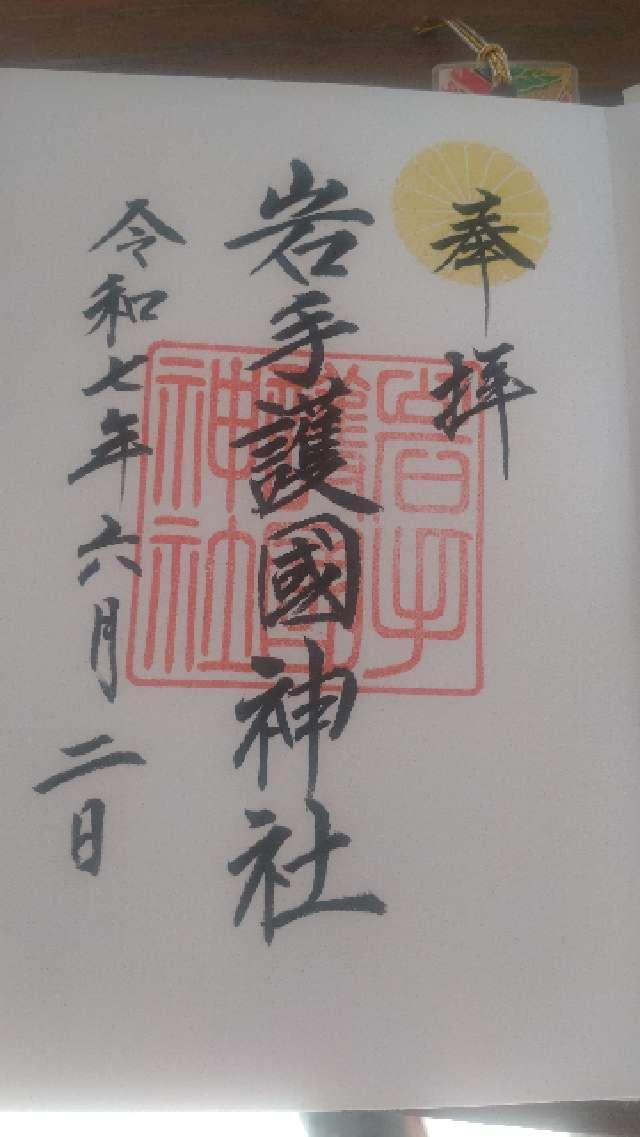 奉拝
岩手護國神社
岩手護國神社
令和七年六月二日